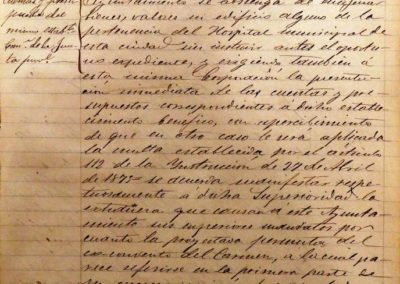 mismo establ.º
Ayuntamiento se abstenga de enagenar
bienes, valores ni edificio alguno de la
pertenencia del Hospital municipal de
esta ciudad sin instruir antes el oportu-
no espediente, y exigiendo también á
esta misma Corporación la presenta-
ción inmediata de las cuentas y pre-
supuestos correspondientes á dicho estable-
cimiento benéfico, con apercibimiento
de que en otro caso le será aplicada
la multa establecida por el artículo
112 de la Instrucción de 27 de Abril
de 1875 se acuerda manifestar respe-
tuosamente á dicha Superioridad la
estrañeza que causan á este Ayunta-
miento sus superiores mandatos por
cuanto la proyectada permuta del
ex-convento del Carmen, á la cual pa-
rece referirse en la primera parte de